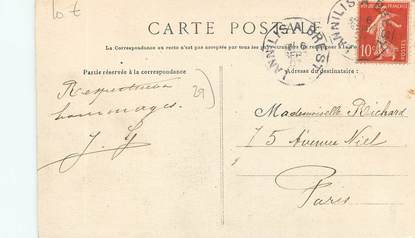 10 €
CARTE POSTALE
La Correspondance au recto n'est pas acceptée par tous les pays étrangers
Partie réservée à la correspondance
Adresse du destinataire :
LANNILIS A BREST
10
Respectueux
hommages.
J. G
29
Mademoiselle Richard
75 Avenue Niel
Paris